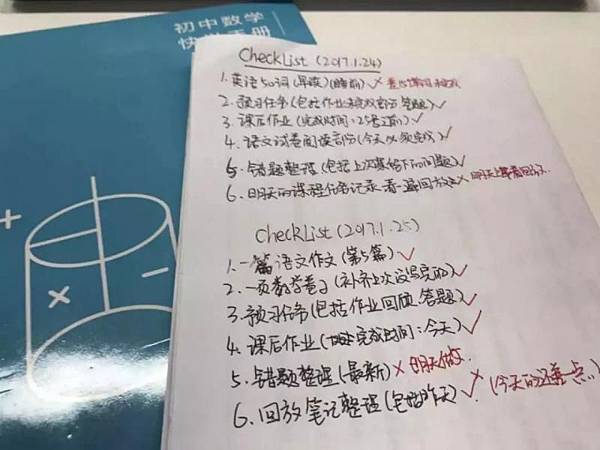 初中数学
CheckList (2017.1.24)
1. 英语50词(早读)(睡前) ✓ ×
2. 预习任务(包括作业未完成部分 答题) ✓
3. 课后作业(完成时间:25号之前) ✓
4. 语文试卷阅读部分(今天必须完成) ✓
5. 错题整理(包括上次遗留下的问题) ✓
6. 明天的课程任务记录 看一遍回放 × 明天上午看回放
CheckList (2017.1.25)
1. 一篇语文作文(第5篇) ✓
2. 一页数学卷子(补齐上次没写完的) ✓
3. 预习任务(包括作业回顾、答题) ✓
4. 课后作业(完成时间:今天) ✓
5. 错题整理(最新) × 明天做
6. 回放笔记整理(包括昨天) ✓ × (今天的还差一点)